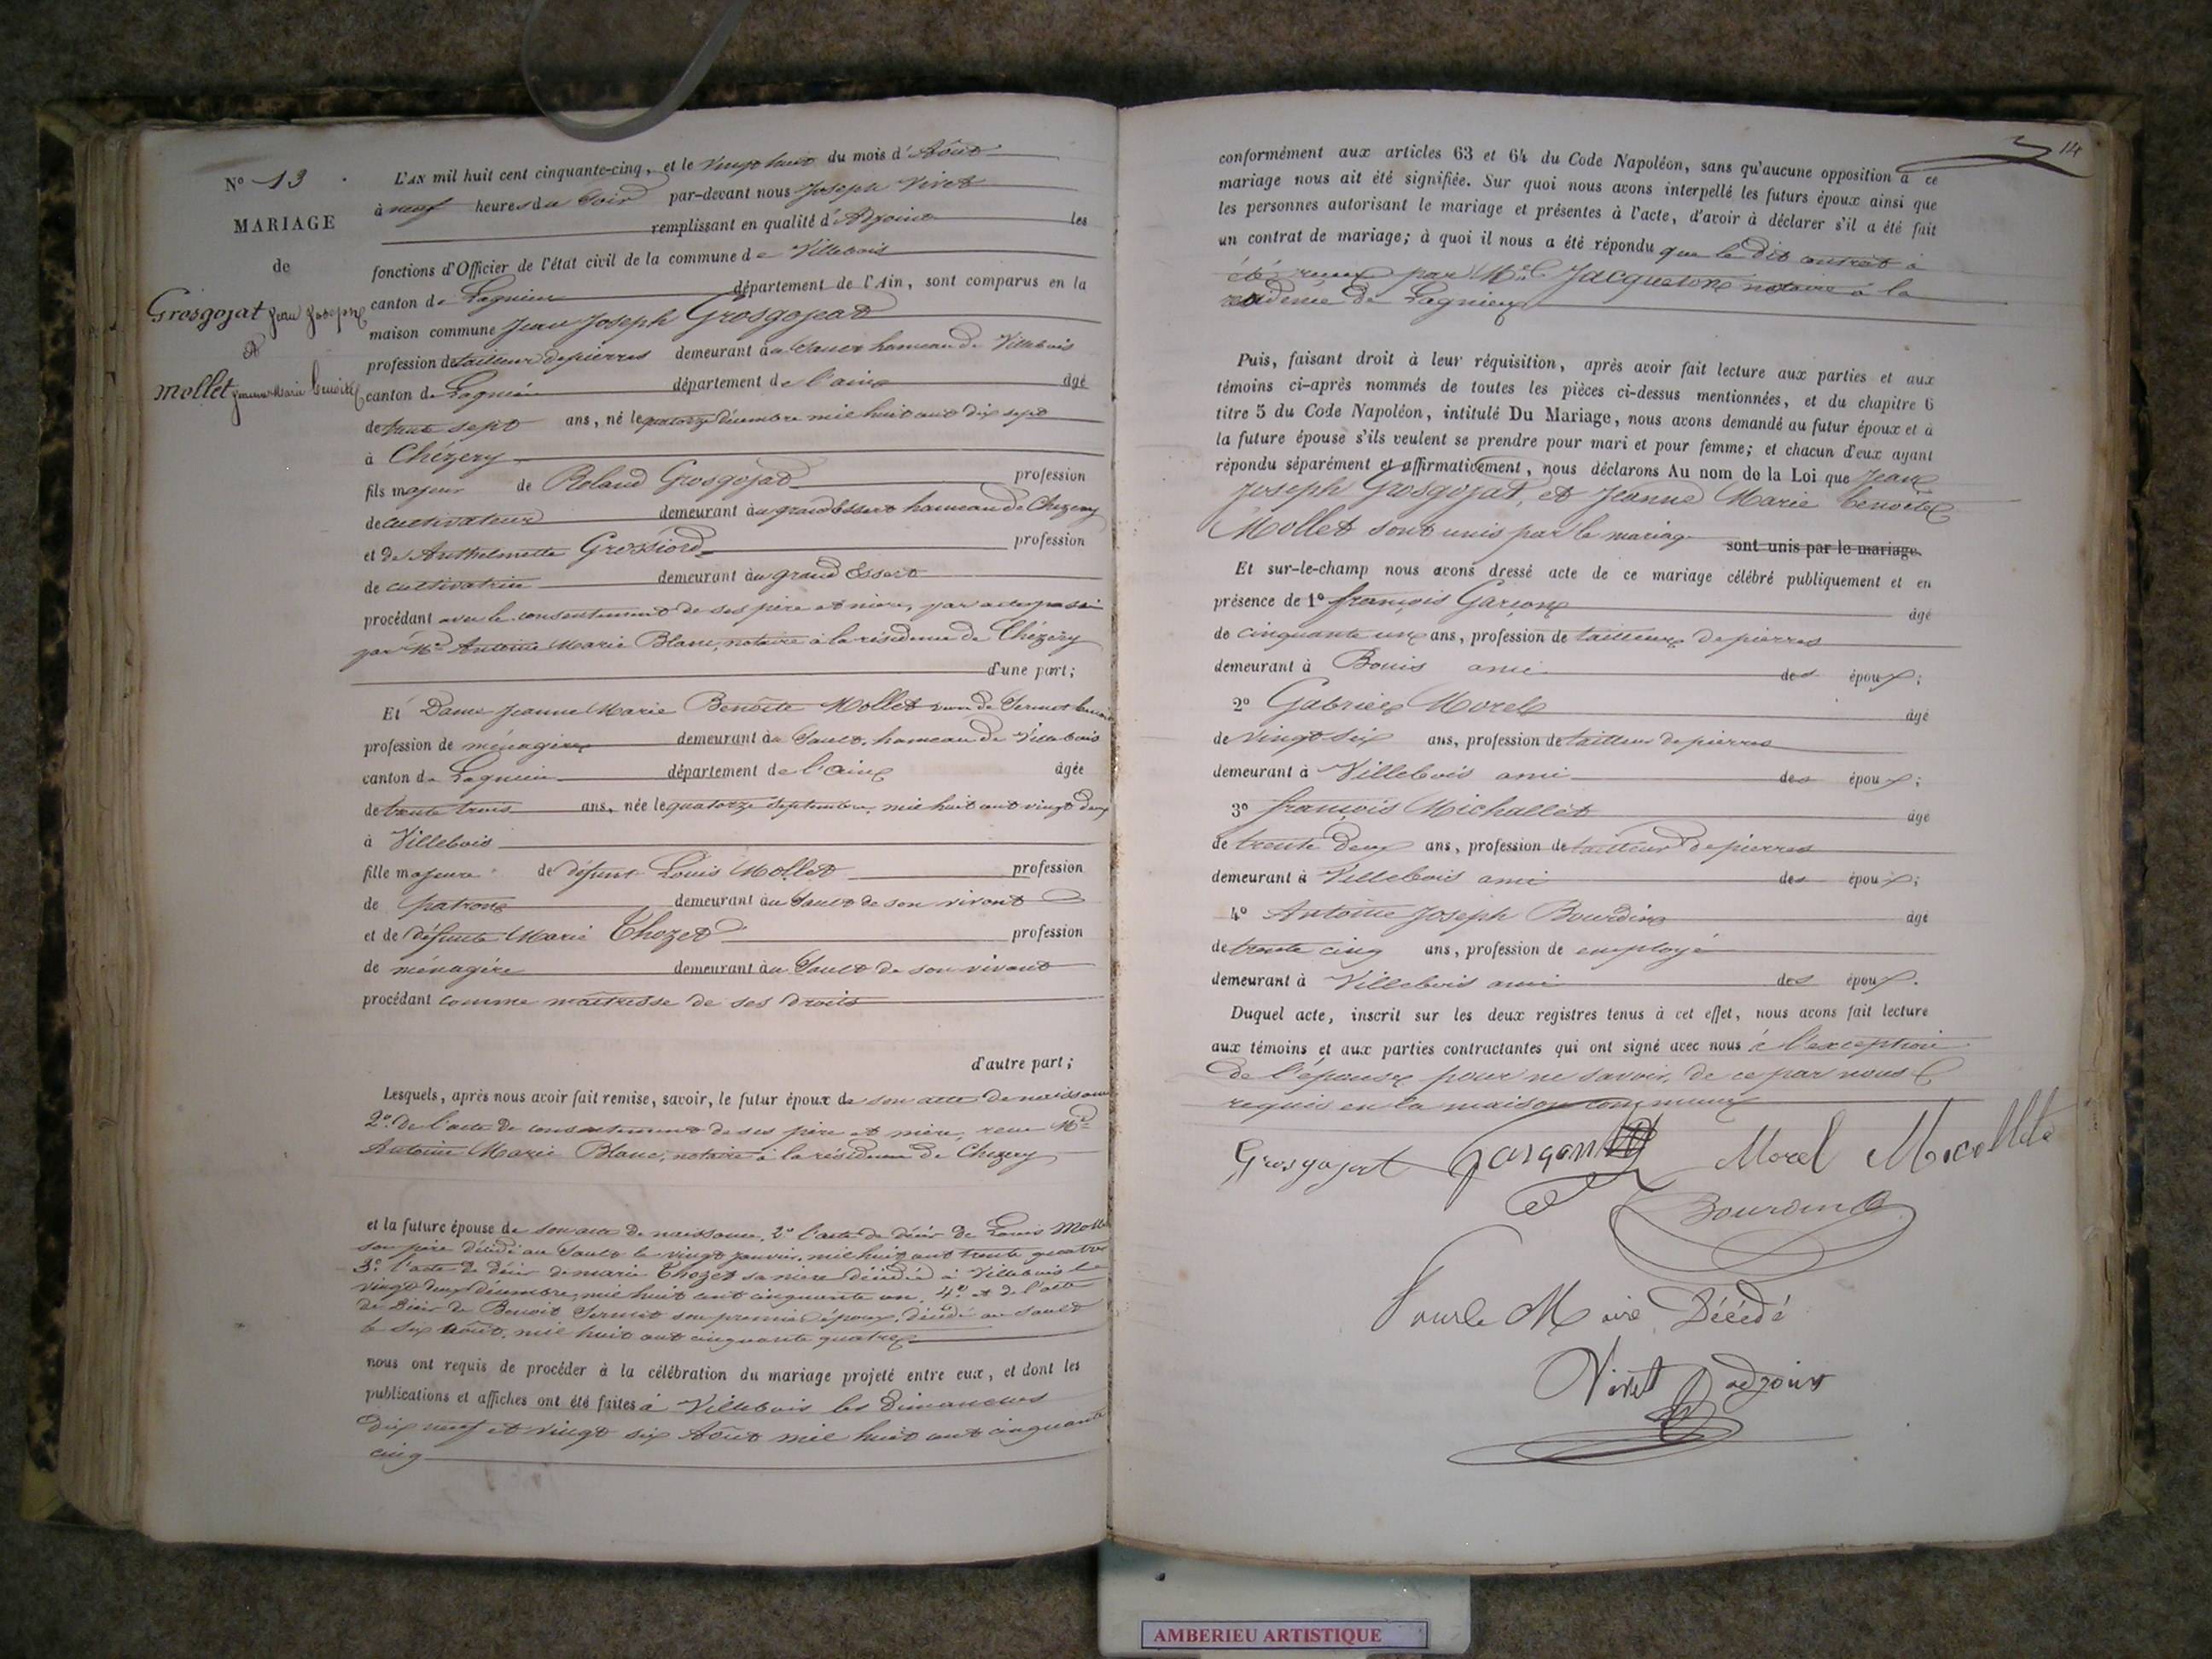 N° 13
MARIAGE
de
Grosgojat Jean Joseph
et
Mollet Jeanne Marie Benoîte
L'AN mil huit cent cinquante-cinq, et le vingt huit du mois d'Août
à neuf heures du soir par-devant nous Joseph Viret
remplissant en qualité d'Adjoint les
fonctions d'Officier de l'état civil de la commune de Villebois
canton de Lagnieu département de l'Ain, sont comparus en la
maison commune Jean Joseph Grosgojat
profession de tailleur de pierres demeurant au Sault hameau de Villebois
canton de Lagnieu département de l'ain âgé
de trente sept ans, né le quatorze décembre mil huit cent dix sept
à Chézery
fils majeur de Roland Grosgojat profession
de cultivateur demeurant au grand Essert hameau de Chezery
et de Anthelmette Grossiord profession
de cultivatrice demeurant au grand Essert
procédant avec le consentement de ses père et mère, par acte passé
par Me Antoine Marie Blanc, notaire à la résidence de Chézery
d'une part;
Et Dame Jeanne Marie Benoîte Mollet veuve de Sermet Benoit
profession de ménagère demeurant au Sault, hameau de Villebois
canton de Lagnieu département de l'ain âgée
de trente trois ans, née le quatorze Septembre, mil huit cent vingt deux
à Villebois
fille majeure de défunt Louis Mollet profession
de patron demeurant au Sault de son vivant
et de défunte Marie Thozet profession
de ménagère demeurant au Sault de son vivant
procédant comme maîtresse de ses droits
d'autre part;
Lesquels, après nous avoir fait remise, savoir, le futur époux de son acte de naissance
2° De l'acte de consentement de ses père et mère, reçu Me
Antoine Marie Blanc, notaire à la résidence de Chezery
et la future épouse de son acte de naissance, 2° l'acte de décès de Louis Mollet
son père décédé au Sault le vingt janvier, mil huit cent trente quatre
3° l'acte de décès de marie Thozet sa mère décédée à Villebois le
vingt deux décembre, mil huit cent cinquante un, 4° et de l'acte
de décès de Benoit Sermet son premier époux, décédé au Sault
le six Août, mil huit cent cinquante quatre
nous ont requis de procéder à la célébration du mariage projeté entre eux, et dont les
publications et affiches ont été faites à Villebois les dimanches
dix neuf et vingt six Août mil huit cent cinquante
cinq
14
conformément aux articles 63 et 64 du Code Napoléon, sans qu'aucune opposition à ce
mariage nous ait été signifiée. Sur quoi nous avons interpellé les futurs époux ainsi que
les personnes autorisant le mariage et présentes à l'acte, d'avoir à déclarer s'il a été fait
un contrat de mariage; à quoi il nous a été répondu que le dit contrat a
été reçu par Me Jacqueton notaire à la
résidence de Lagnieu
Puis, faisant droit à leur réquisition, après avoir fait lecture aux parties et aux
témoins ci-après nommés de toutes les pièces ci-dessus mentionnées, et du chapitre 6
titre 5 du Code Napoléon, intitulé Du Mariage, nous avons demandé au futur époux et à
la future épouse s'ils veulent se prendre pour mari et pour femme; et chacun d'eux ayant
répondu séparément et affirmativement, nous déclarons Au nom de la Loi que Jean
Joseph Grosgojat, et Jeanne Marie Benoîte
Mollet sont unis par le mariage sont unis par le mariage.
Et sur-le-champ nous avons dressé acte de ce mariage célébré publiquement et en
présence de 1° françois Garçon âgé
de cinquante un ans, profession de tailleur de pierres
demeurant à Bouis ami des époux;
2° Gabriel Morel âgé
de vingt-six ans, profession de tailleur de pierres
demeurant à Villebois ami des époux;
3° françois Michallet âgé
de trente deux ans, profession de tailleur de pierres
demeurant à Villebois ami des époux;
4° Antoine Joseph Bourdin âgé
de trente cinq ans, profession de employé
demeurant à Villebois ami des époux.
Duquel acte, inscrit sur les deux registres tenus à cet effet, nous avons fait lecture
aux témoins et aux parties contractantes qui ont signé avec nous à l'exception
de l'épouse pour ne savoir, de ce par nous
requis en la maison commune
Grosgojat Gargon Morel Micallet
Bourdin
Pour le Maire Décédé
Viret adjoint
AMBERIEU ARTISTIQUE